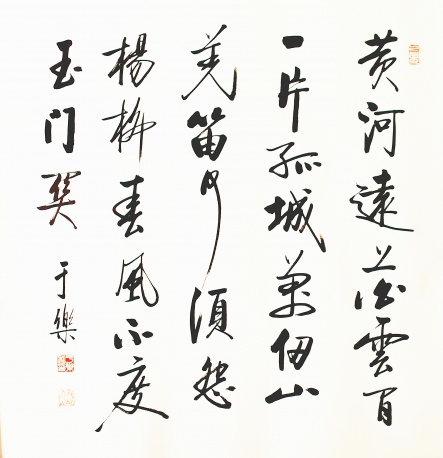 黄河遠上白雲間
一片孤城萬仞山
羌笛何須怨
楊柳春風不度
玉门關 于樂